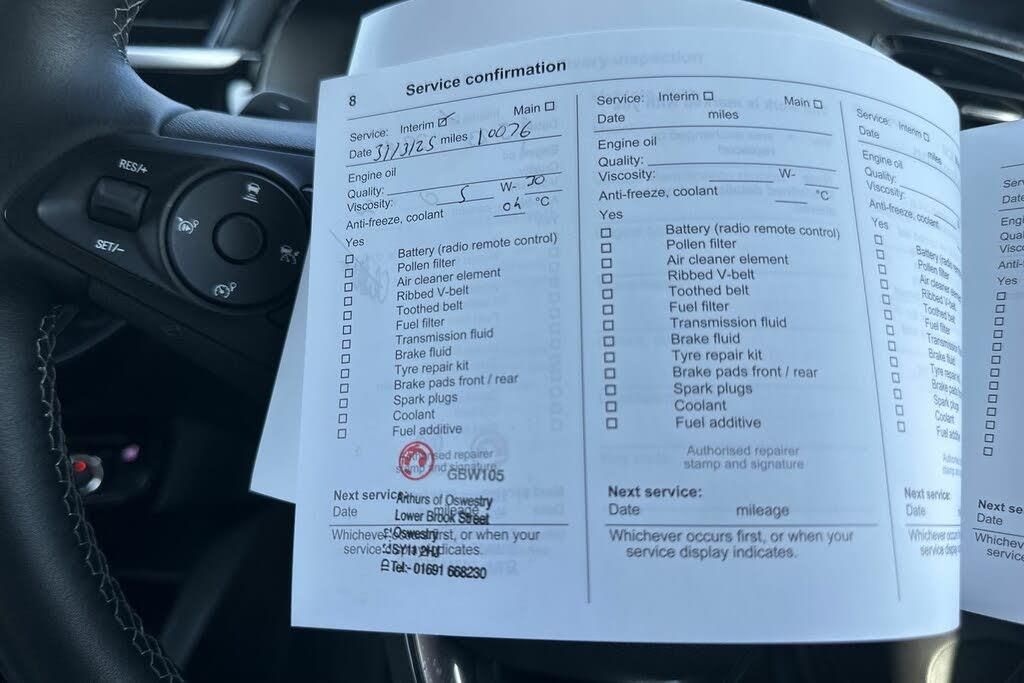 RES/+
SET/-
8
Service confirmation
Service: Interim Main
Date 31/3/25 miles 10076
Engine oil
Quality:
Viscosity: 5 W-30
Anti-freeze, coolant °C
Yes
Battery (radio remote control)
Pollen filter
Air cleaner element
Ribbed V-belt
Toothed belt
Fuel filter
Transmission fluid
Brake fluid
Tyre repair kit
Brake pads front / rear
Spark plugs
Coolant
Fuel additive
stamp and signature
GBW105
Next service:
Date mileage
Arthurs of Oswestry
Lower Brook Street
Oswestry
SY11 2HJ
Tel:- 01691 668230
Whichever first, or when your
service indicates.
Service: Interim Main
Date miles
Engine oil
Quality:
Viscosity: W-
Anti-freeze, coolant °C
Yes
Battery (radio remote control)
Pollen filter
Air cleaner element
Ribbed V-belt
Toothed belt
Fuel filter
Transmission fluid
Brake fluid
Tyre repair kit
Brake pads front / rear
Spark plugs
Coolant
Fuel additive
Authorised repairer
stamp and signature
Next service:
Date mileage
Whichever occurs first, or when your
service display indicates.
Service: Interim
Date miles
Engine oil
Quality:
Viscosity:
Anti-freeze, coolant
Yes
Battery (radio
Pollen filter
Air cleaner
Ribbed V-belt
Toothed belt
Fuel filter
Brake fluid
Tyre repair
Brake pads
Spark
Coolant
Fuel
Next service:
Date
Whichever
service
Date
Yes
Date
service